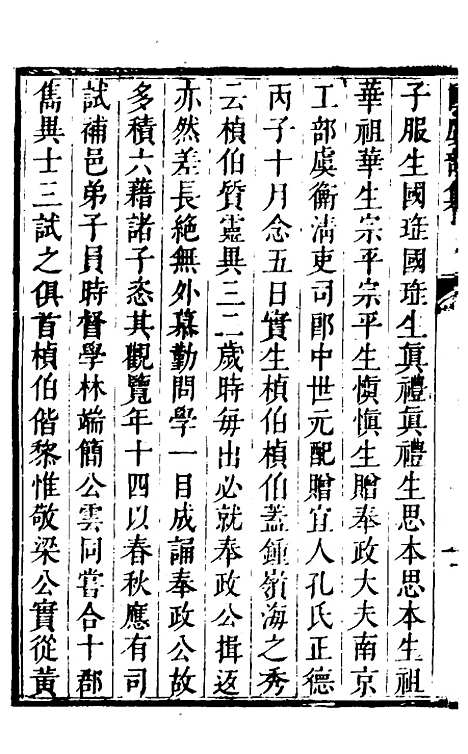 子服生國琟國琟生眞禮眞禮生思本思本生祖
華祖華生宗平宗平生愼愼生贈奉政大夫南京
工部虞衡淸吏司郎中世元配贈宜人孔氏正德
丙子十月念五日實生楨伯楨伯蓋鍾嶺海之秀
云楨伯質靈異三二歲時每出必就奉政公揖返
亦然差長絶無外慕勤問學一目成誦奉政公故
多積六藉諸子恣其觀覽年十四以春秋應有司
試補邑弟子員時督學林端簡公雲同嘗合十郡
雋異士三試之俱首楨伯偕黎惟敬梁公實從黃